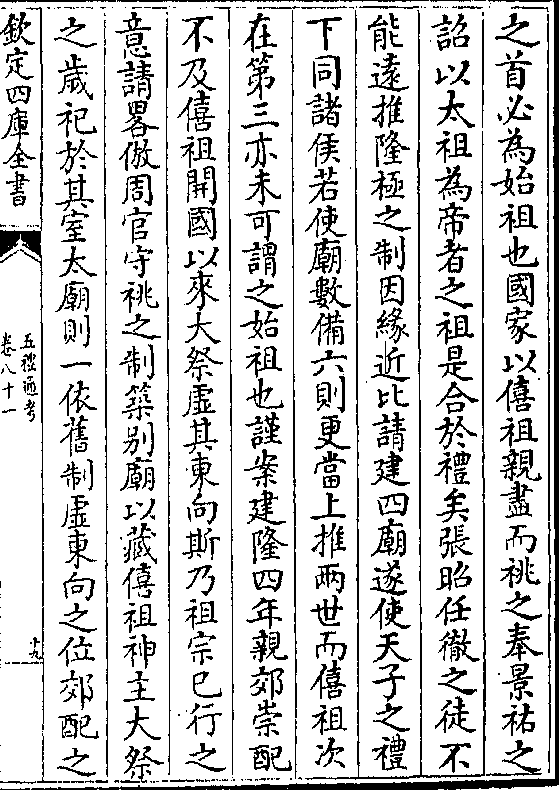 之首必為始祖也國家以僖祖親盡而祧之奉景祐之
詔以太祖為帝者之祖是合於禮矣張昭任徹之徒不
能遠推隆極之制因緣近比請建四廟遂使天子之禮
下同諸侯若使廟數備六則更當上推兩世而僖祖次
在第三亦未可謂之始祖也謹案建隆四年親郊崇配
不及僖祖開國以來大祭虚其東向斯乃祖宗已行之
意請畧倣周官守祧之制築别廟以藏僖祖神主大祭
之歲祀於其室太廟則一依舊制虚東向之位郊配之
欽定四庫全書
五禮通考
卷八十一
十九